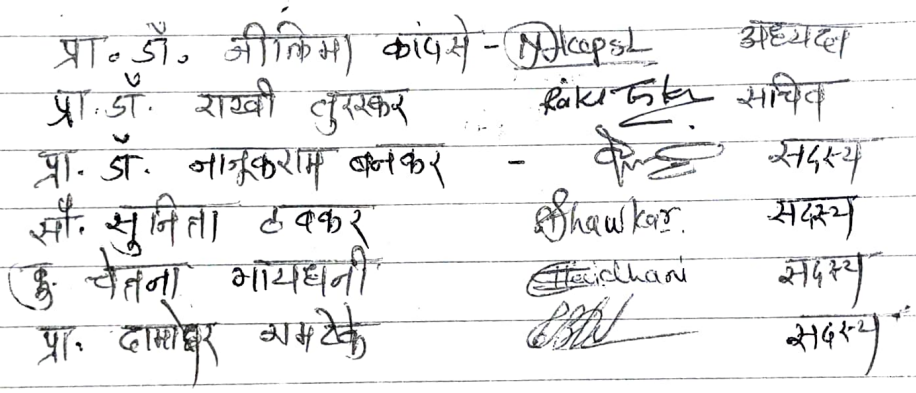 प्रा. डॉ. नीलिमा कापसे - NKapse अध्यक्ष
प्रा. डॉ. राखी तुरस्कर सचिव
प्रा. डॉ. नानकराम बनकर - सदस्य
सौ. सुनिता ठवकर Sthawkar. सदस्य
कु. चेतना मायधनी सदस्य
प्रा. दामोधर रामटेके सदस्य